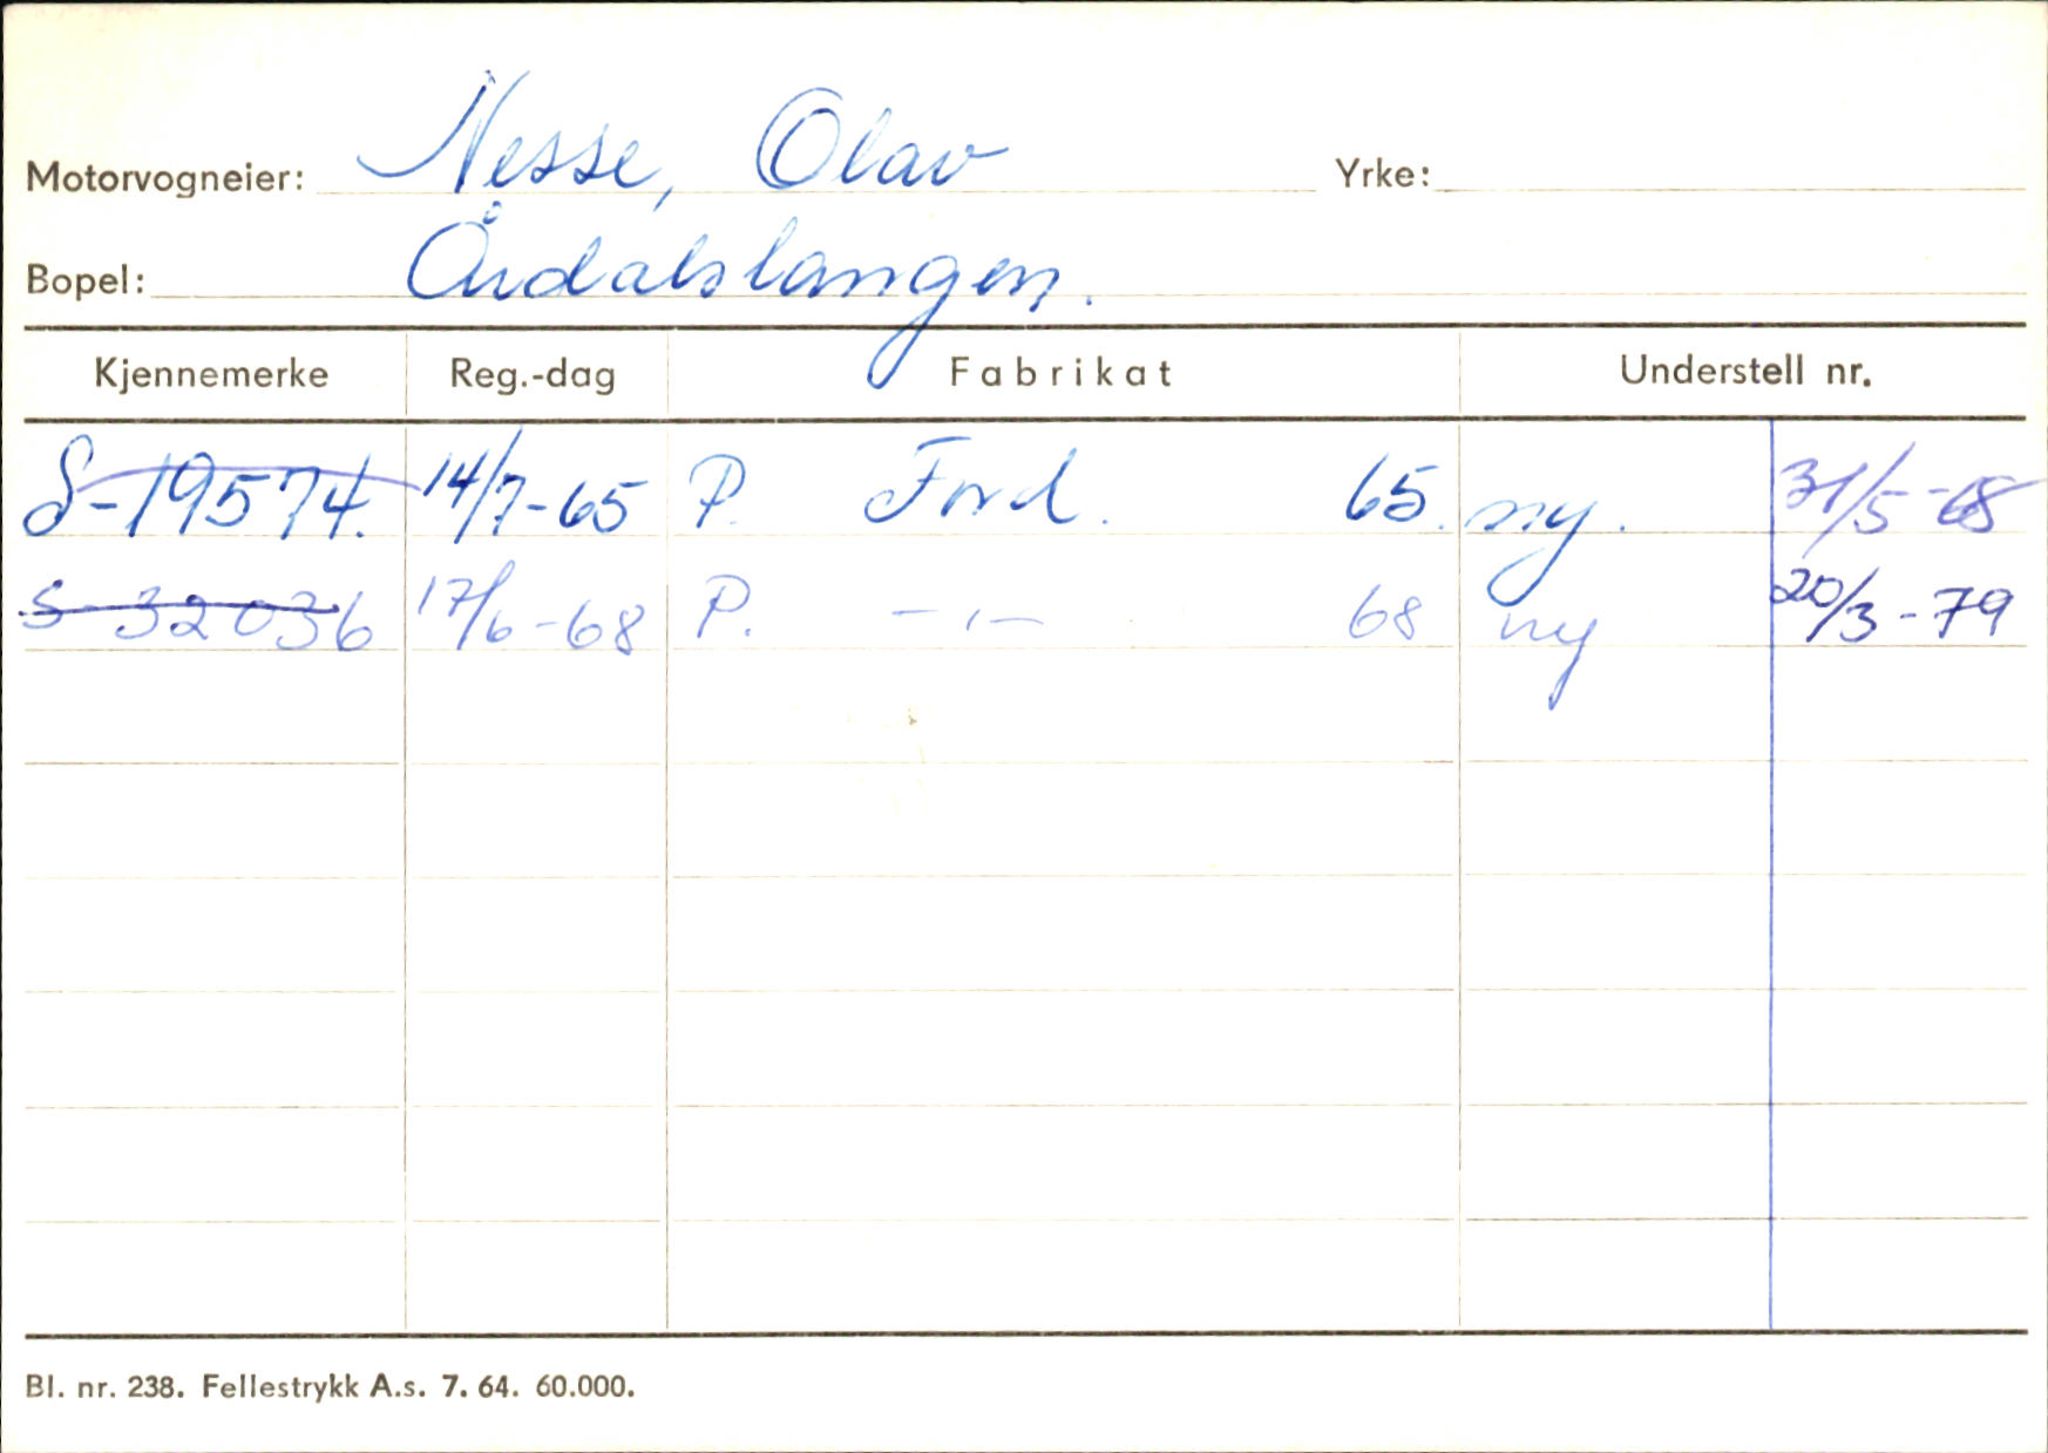 Motorvogneier: Nesse, Olav Yrke:
Bopel: Årdalstangen.
Kjennemerke Reg.-dag Fabrikat Understell nr.
S-19574. 14/7-65 P. Ford. 65. ny. 31/5-68
S-32036 17/6-68 P. -"- 68 ny 20/3-79
Bl. nr. 238. Fellestrykk A.s. 7. 64. 60.000.